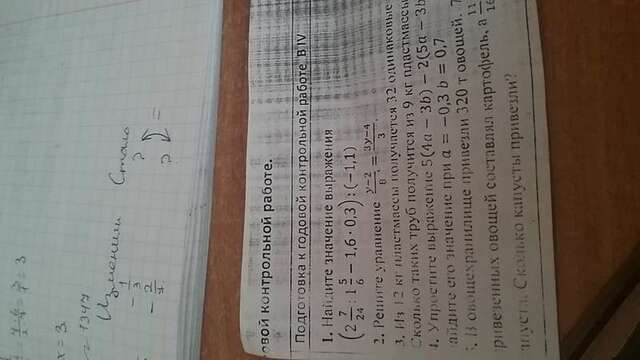 = 3
x = 3
1347
Изменили Стало
- 1/3 ?
- 2/7 ? =
овой контрольной работе.
Подготовка к годовой контрольной работе. В IV
1. Найдите значение выражения
(2 7/24 : 1 5/6 − 1,6 · 0,3) : (−1,1)
2. Решите уравнение (y−2)/8 = (3y−4)/3.
3. Из 12 кг пластмассы получается 32 одинаковые
Сколько таких труб получится из 9 кг пластмассы
4. Упростите выражение 5(4a − 3b) − 2(5a − 3b
айдите его значение при a = −0,3 b = 0,7
. В овощехранилище привезли 320 т овощей. 7
ривезенных овощей составлял картофель, а 11/16
апуста. Сколько капусты привезли?